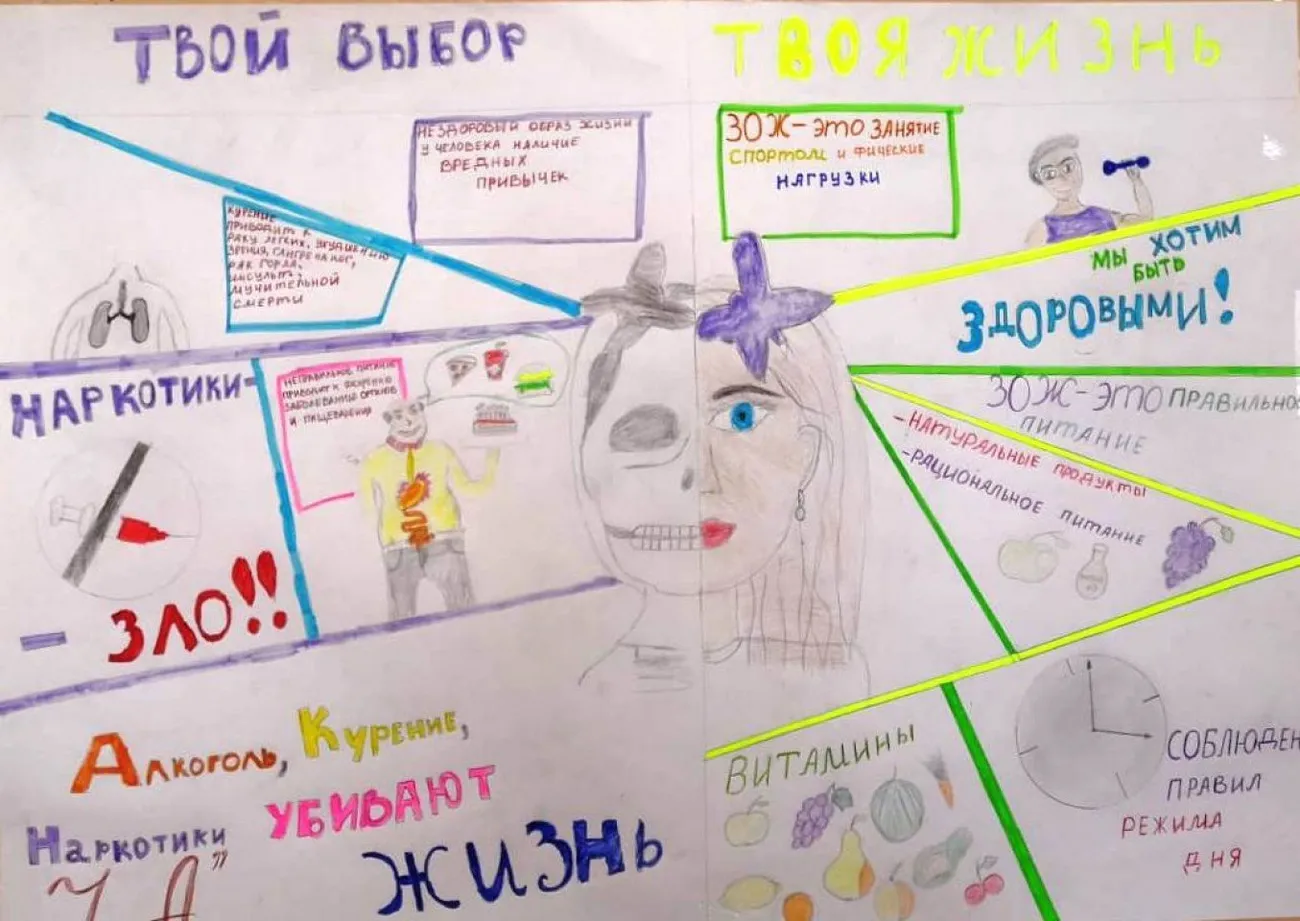 ТВОЙ ВЫБОР
ТВОЯ ЖИЗНЬ
НЕЗДОРОВЫЙ ОБРАЗ ЖИЗНИ
У ЧЕЛОВЕКА НАЛИЧИЕ
ВРЕДНЫХ
ПРИВЫЧЕК
КУРЕНИЕ
ПРИВОДИТ К
РАКУ ЛЕГКИХ,
ЗРЕНИЯ, ГАНГРЕНА НОГ,
РАК ГОРЛА,
ИНСУЛЬТ,
МУЧИТЕЛЬНОЙ
СМЕРТИ
НАРКОТИКИ-
- ЗЛО!!
НЕПРАВИЛЬНОЕ ПИТАНИЕ
ПРИВОДИТ К
ЗАБОЛЕВАНИЯ ОРГАНОВ
И ПИЩЕВАРЕНИЯ
АЛКОГОЛЬ, КУРЕНИЕ,
НАРКОТИКИ УБИВАЮТ
ЖИЗНЬ
ЗОЖ-ЭТО ЗАНЯТИЕ
СПОРТОМ И ФИЧЕСКИЕ
НАГРУЗКИ
МЫ ХОТИМ
БЫТЬ
ЗДОРОВЫМИ!
ЗОЖ-ЭТО ПРАВИЛЬНОЕ
ПИТАНИЕ
-НАТУРАЛЬНЫЕ ПРОДУКТЫ
-РАЦИОНАЛЬНОЕ ПИТАНИЕ
ВИТАМИНЫ
СОБЛЮДЕН
ПРАВИЛ
РЕЖИМА
ДНЯ